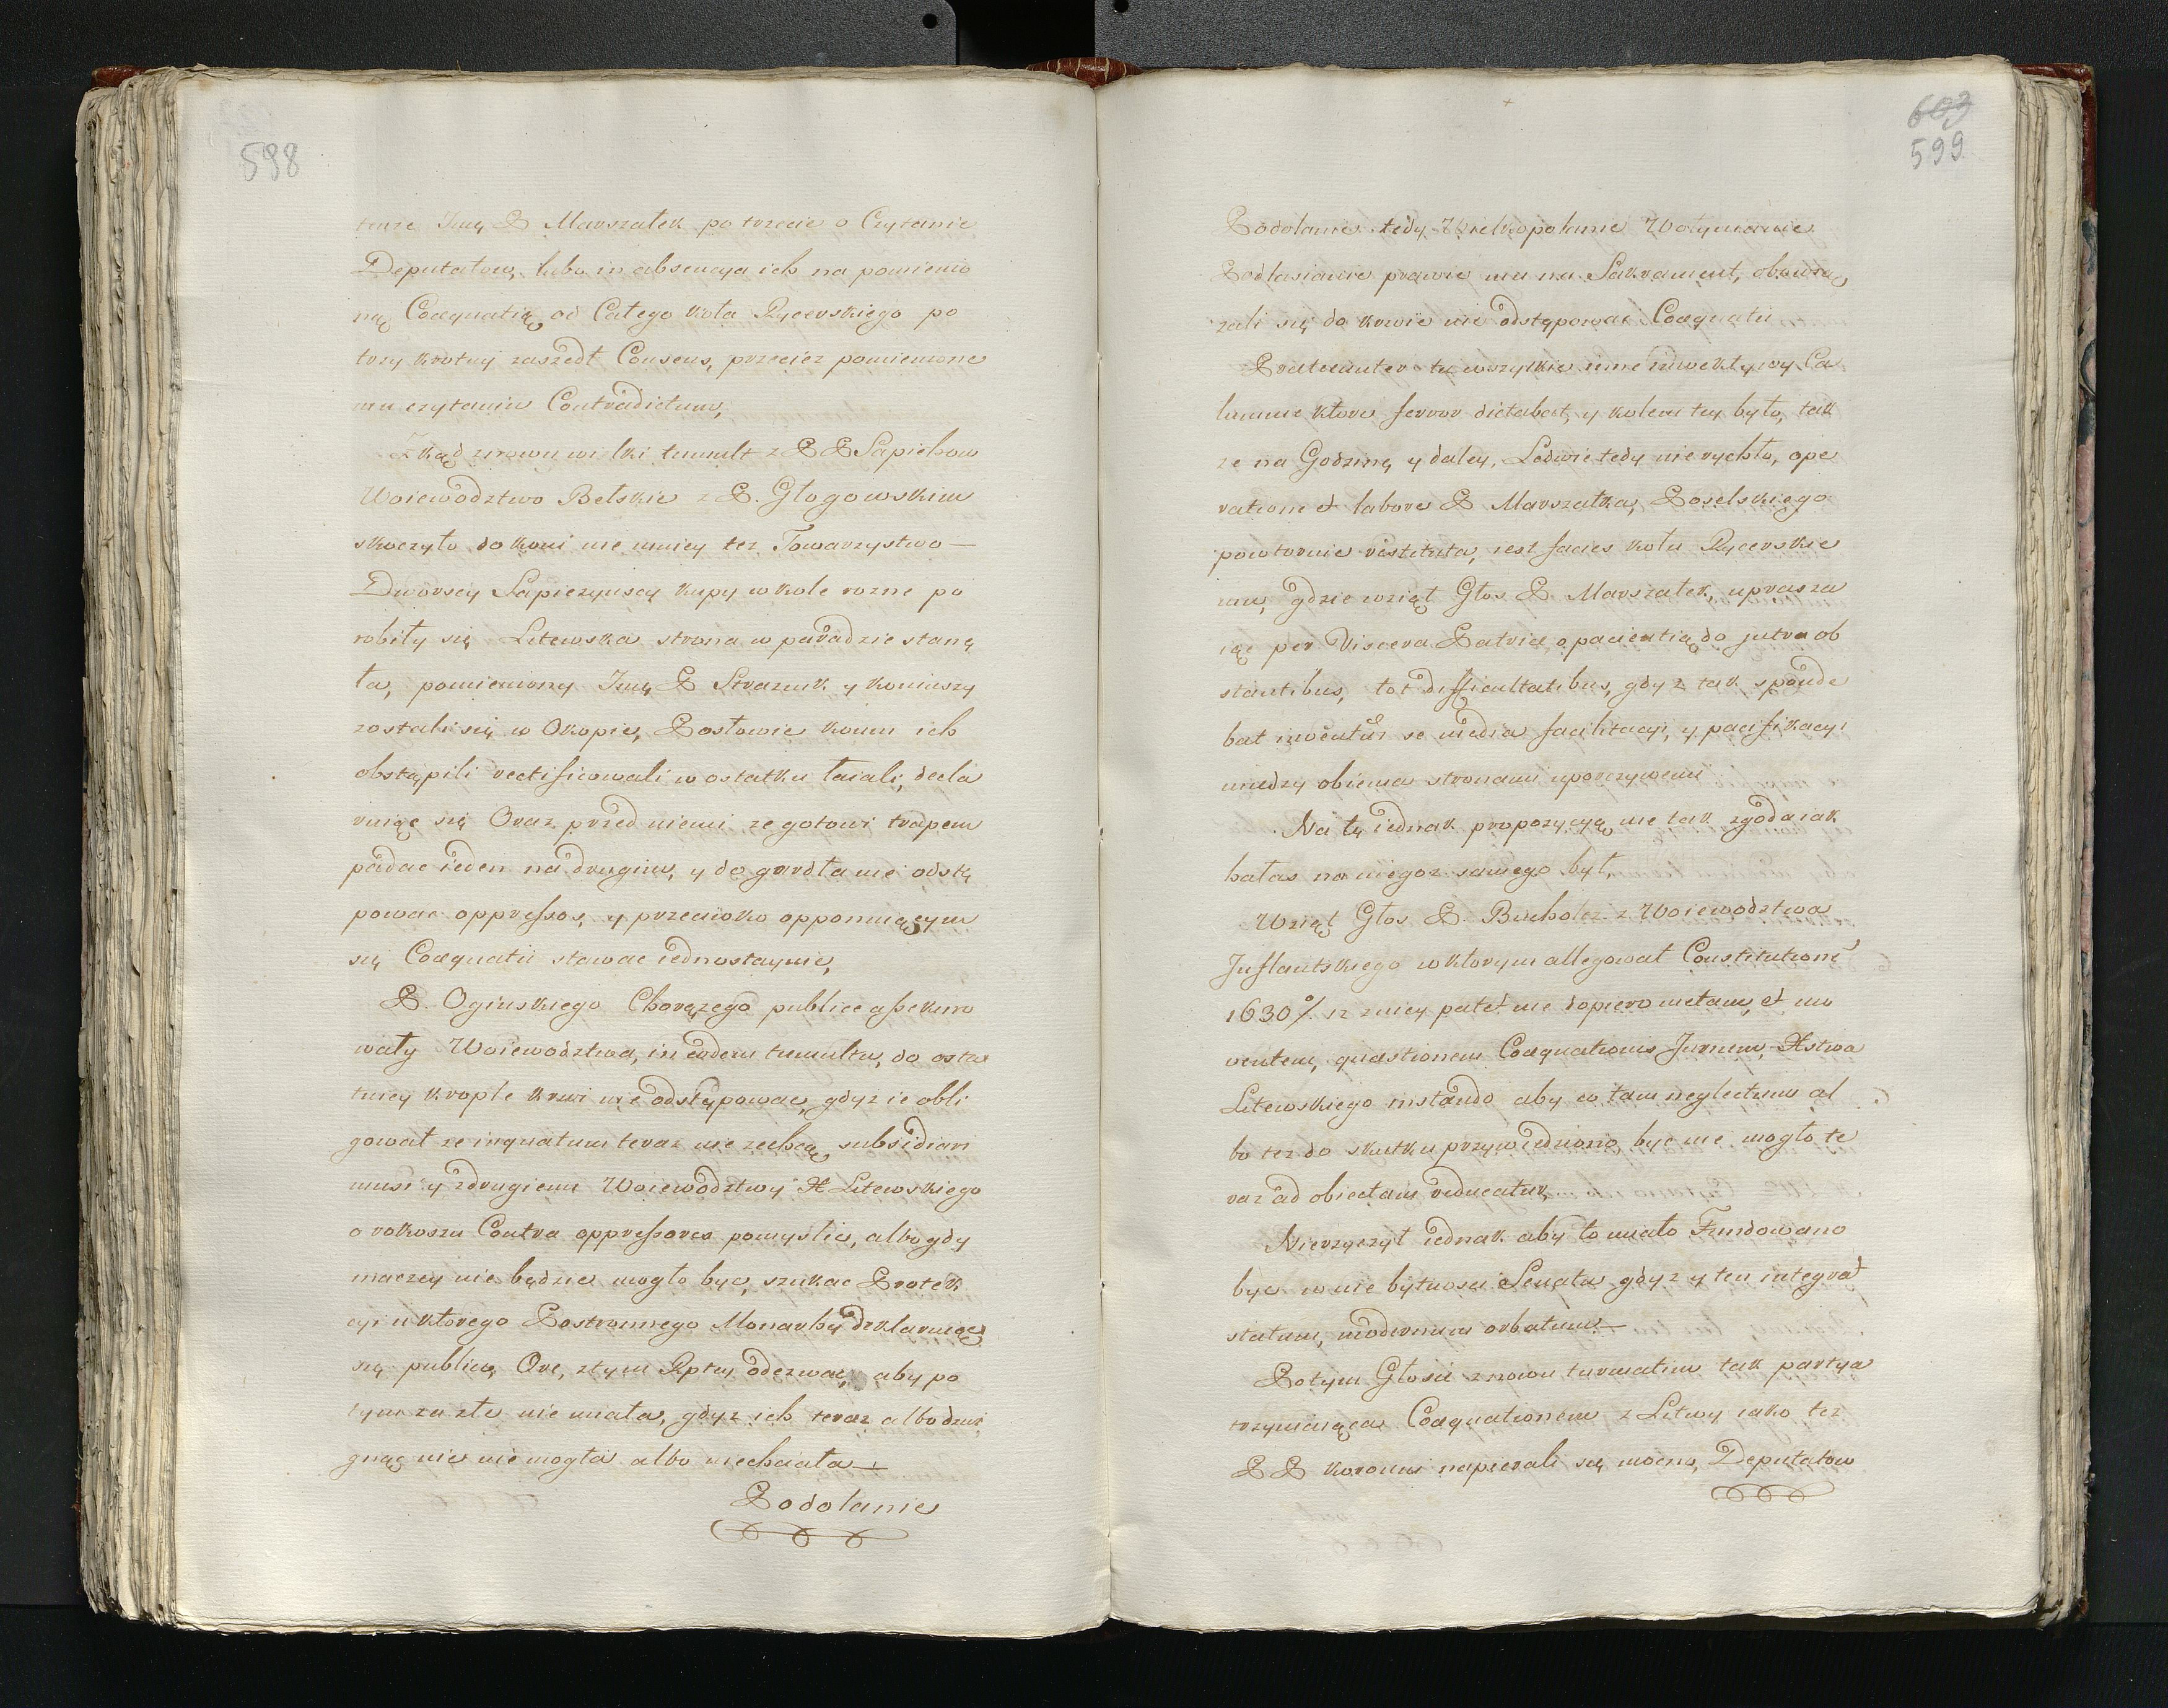 598
tenże Imę P Marszałek po trzecie o Czytanie
Deputatow, lubo in absencya ich na pomienio
ną Coæquatią od Całego Koła Rycerskiego po
trzy krotny zaszedł Consens, przeciez pomienione
mu czytaniu Contradictum,
Zkąd znowu wilki tumult z P P Sapiehow
Woiewodztwo Bełskie z P. Głogowskim
skoczyło do koni nie mniey tez Towarzystwo —
Dworscy Sapiezynscy kupy w kole rozne po
robiły się Litewska strona w paradzie stanę
ła, pomieniony Imę P Straznik y koniuszy
zostali się w Okopie, Posłowie konni ich
obstąpili rectificowali w ostatku łaiali, decla
ruiąc się Oraz przed niemi ze gotowi trupem
padac ieden na drugim, y do gardła nie odstę
powac oppressos, y przeciwko opponuiącym
się Coæquatii stawac iednostaynie,
P. Oginskiego Chorązego publice assekuro
wały Woiewodztwa, in eodem tumultu, do osta
tniey krople krwi nie odstępowac, gdyz ie obli
gował ze inquatum teraz nie zechcą subsidiari
musi y zdrugiemi Woiewodztwy X Litewskiego
o rokoszu Contra oppressores pomyslic, albo gdy
inaczey nie będzie mogło byc, szukac Protek
cyi u ktorego Postronnego Monarhy deklaruiąc
się publico Ore, ztym Rptey odezwac, aby po
tym za złe nie miała, gdyz ich teraz albo dzwi
gnąc nie nie mogła albo niechciała —
Podolanie
603
599
Podolanie tedy Wielkopolanie Wołynianie
Podlasianie prawie mu na Sakrament, obowią
zali się do krwie nie odstępowac Coæquatii
Prætereunter tu wszytkie inne inwektywy Ca
lumnie ktore ferror dictabat, y kolem tey było, tak
ze na Godzinę y daley, Ledwie tedy nie rychło, ope
ratione et labore P Marszałka, Poselskiego
powtornie restituta, iest facies kołu Rycerskie
mu, gdzie wziął Głos P Marszałek, uprasza
iąc per Viscera Patriæ o pacientią do jutra ob
stantibus, tot difficultatibus, gdyz tak sponde
bat inventur se media facilitacyi, y pacifikacyi
miedzy obiema stronami uporczywemi
Na tę iednak propozycyą nie tak zgoda iak
hałas na niegoz samego był,
Wziął Głos P. Bucholcz z Woiewodztwa
Inflantskiego w ktorym allegował Constitutione
1630 iz zniey patet nie dopiero metam, et mo
ventem, quæstionem Coæquationis Jurium, Xstwa
Litewskiego instando aby co tam neglectum al
bo tez do skutku przywiedziono byc nie mogło te
raz ad obiectam reducatur,
Nierzyczył iednak aby to miało Fundowano
byc w nie bytnosci Senatu gdyz y ten integrat
statum, modernum orbatum —
Potym Głosie znowu turmatim tak partya
trzymaiąca Coæquationem z Litwy iako tez
P P koronni napierali się mocno, Deputatow